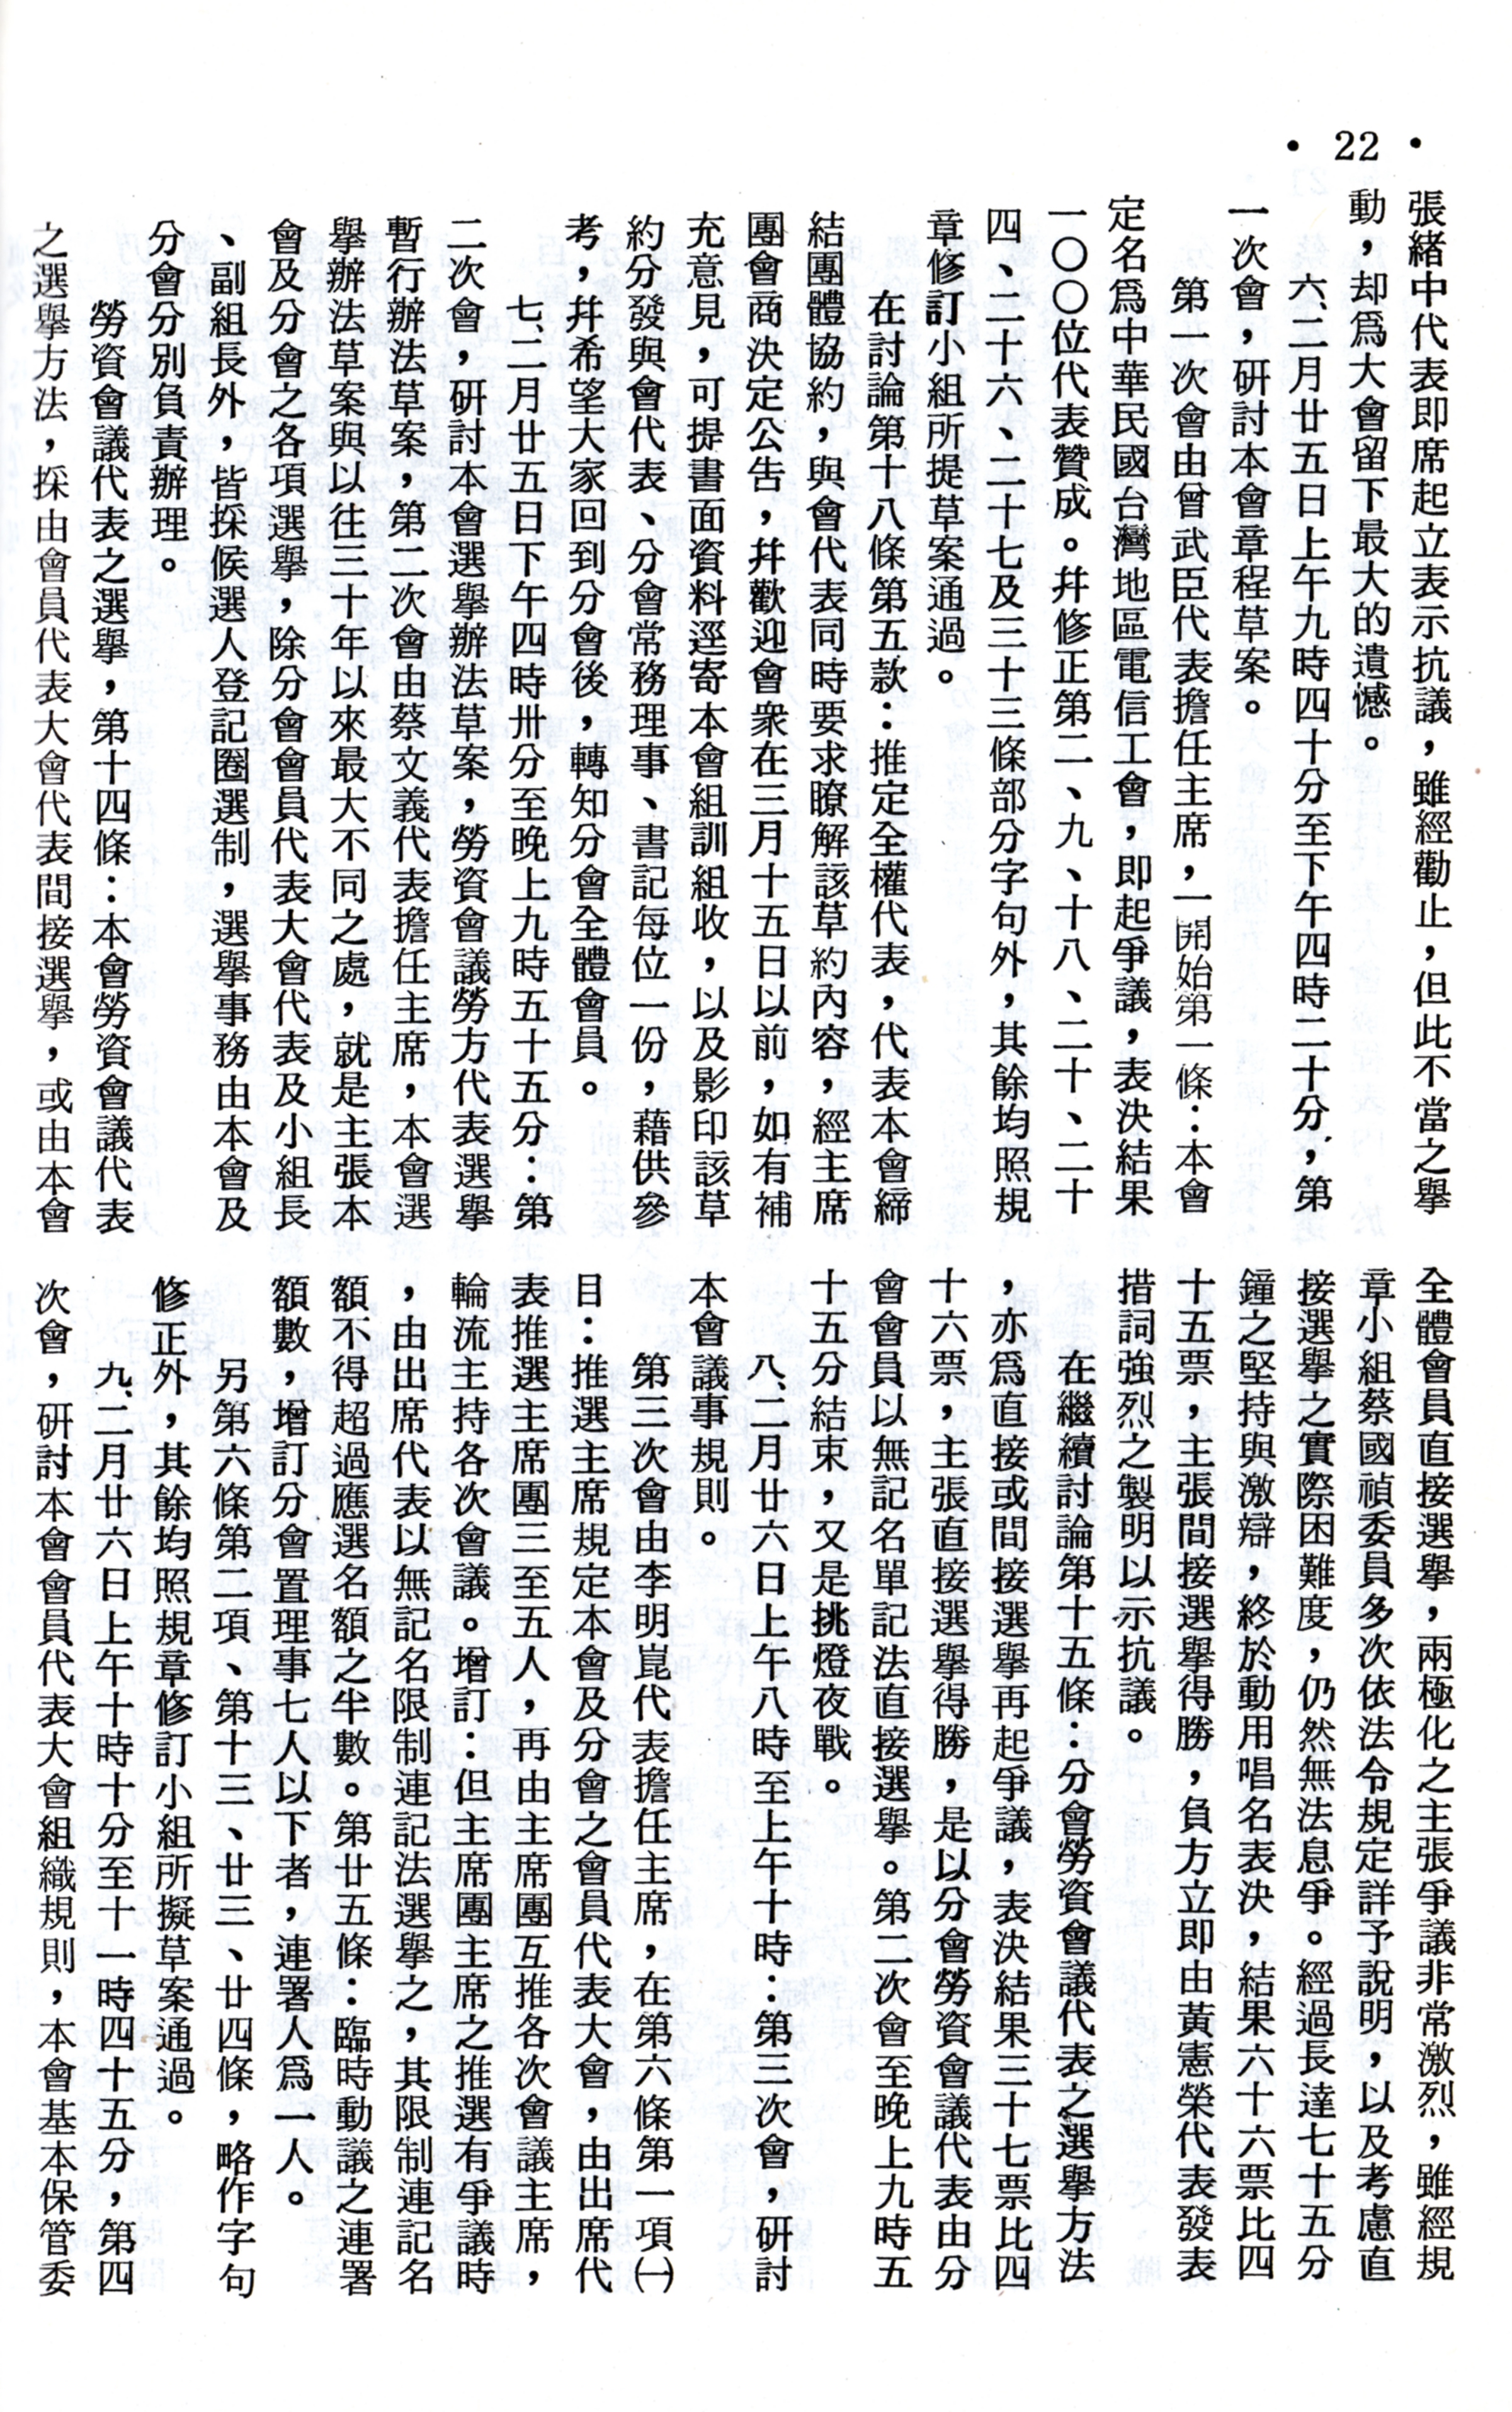 • 22 •
張緒中代表即席起立表示抗議，雖經勸止，但此不當之舉
動，却爲大會留下最大的遺憾。
六二月廿五日上午九時四十分至下午四時二十分，第
一次會，研討本會章程草案。
第一次會由曾武臣代表擔任主席，一開始第一條：本會
定名爲中華民國台灣地區電信工會，即起爭議，表決結果
一〇〇位代表贊成。幷修正第二、九、十八、二十、二十
四、二十六、二十七及三十三條部分字句外，其餘均照規
章修訂小組所提草案通過。
在討論第十八條第五款：推定全權代表，代表本會締
結團體協約，與會代表同時要求瞭解該草約內容，經主席
團會商決定公告，幷歡迎會衆在三月十五日以前，如有補
充意見，可提書面資料逕寄本會組訓組收，以及影印該草
約分發與會代表、分會常務理事、書記每位一份，藉供參
考，幷希望大家回到分會後，轉知分會全體會員。
七二月廿五日下午四時卅分至晚上九時五十五分：第
二次會，研討本會選舉辦法草案，勞資會議勞方代表選舉
暫行辦法草案，第二次會由蔡文義代表擔任主席，本會選
舉辦法草案與以往三十年以來最大不同之處，就是主張本
會及分會之各項選舉，除分會會員代表大會代表及小組長
、副組長外，皆採候選人登記圈選制，選舉事務由本會及
分會分別負責辦理。
勞資會議代表之選舉，第十四條：本會勞資會議代表
之選舉方法，採由會員代表大會代表間接選舉，或由本會
全體會員直接選舉，兩極化之主張爭議非常激烈，雖經規
章小組蔡國禎委員多次依法令規定詳予說明，以及考慮直
接選舉之實際困難度，仍然無法息爭。經過長達七十五分
鐘之堅持與激辯，終於動用唱名表決，結果六十六票比四
十五票，主張間接選舉得勝，負方立即由黃憲榮代表發表
措詞強烈之製明以示抗議。
在繼續討論第十五條：分會勞資會議代表之選舉方法
，亦爲直接或間接選舉再起爭議，表決結果五十七票比四
十六票，主張直接選舉得勝，是以分會勞資會議代表由分
會會員以無記名單記法直接選舉。第二次會至晚上九時五
十五分結束，又是挑燈夜戰。
八二月廿六日上午八時至上午十時：第三次會，研討
本會議事規則。
第三次會由李明崑代表擔任主席，在第六條第一項㈠
目：推選主席規定本會及分會之會員代表大會，由出席代
表推選主席團三至五人，再由主席團互推各次會議主席，
輪流主持各次會議。增訂：但主席團主席之推選有爭議時
，由出席代表以無記名限制連記法選舉之，其限制連記名
額不得超過應選名額之半數。第廿五條：臨時動議之連署
額數，增訂分會置理事七人以下者，連署人爲一人。
另第六條第二項、第十三、廿三、廿四條，略作字句
修正外，其餘均照規章修訂小組所擬草案通過。
九二月廿六日上午十時十分至十一時四十五分，第四
次會，研討本會會員代表大會組織規則，本會基本保管委